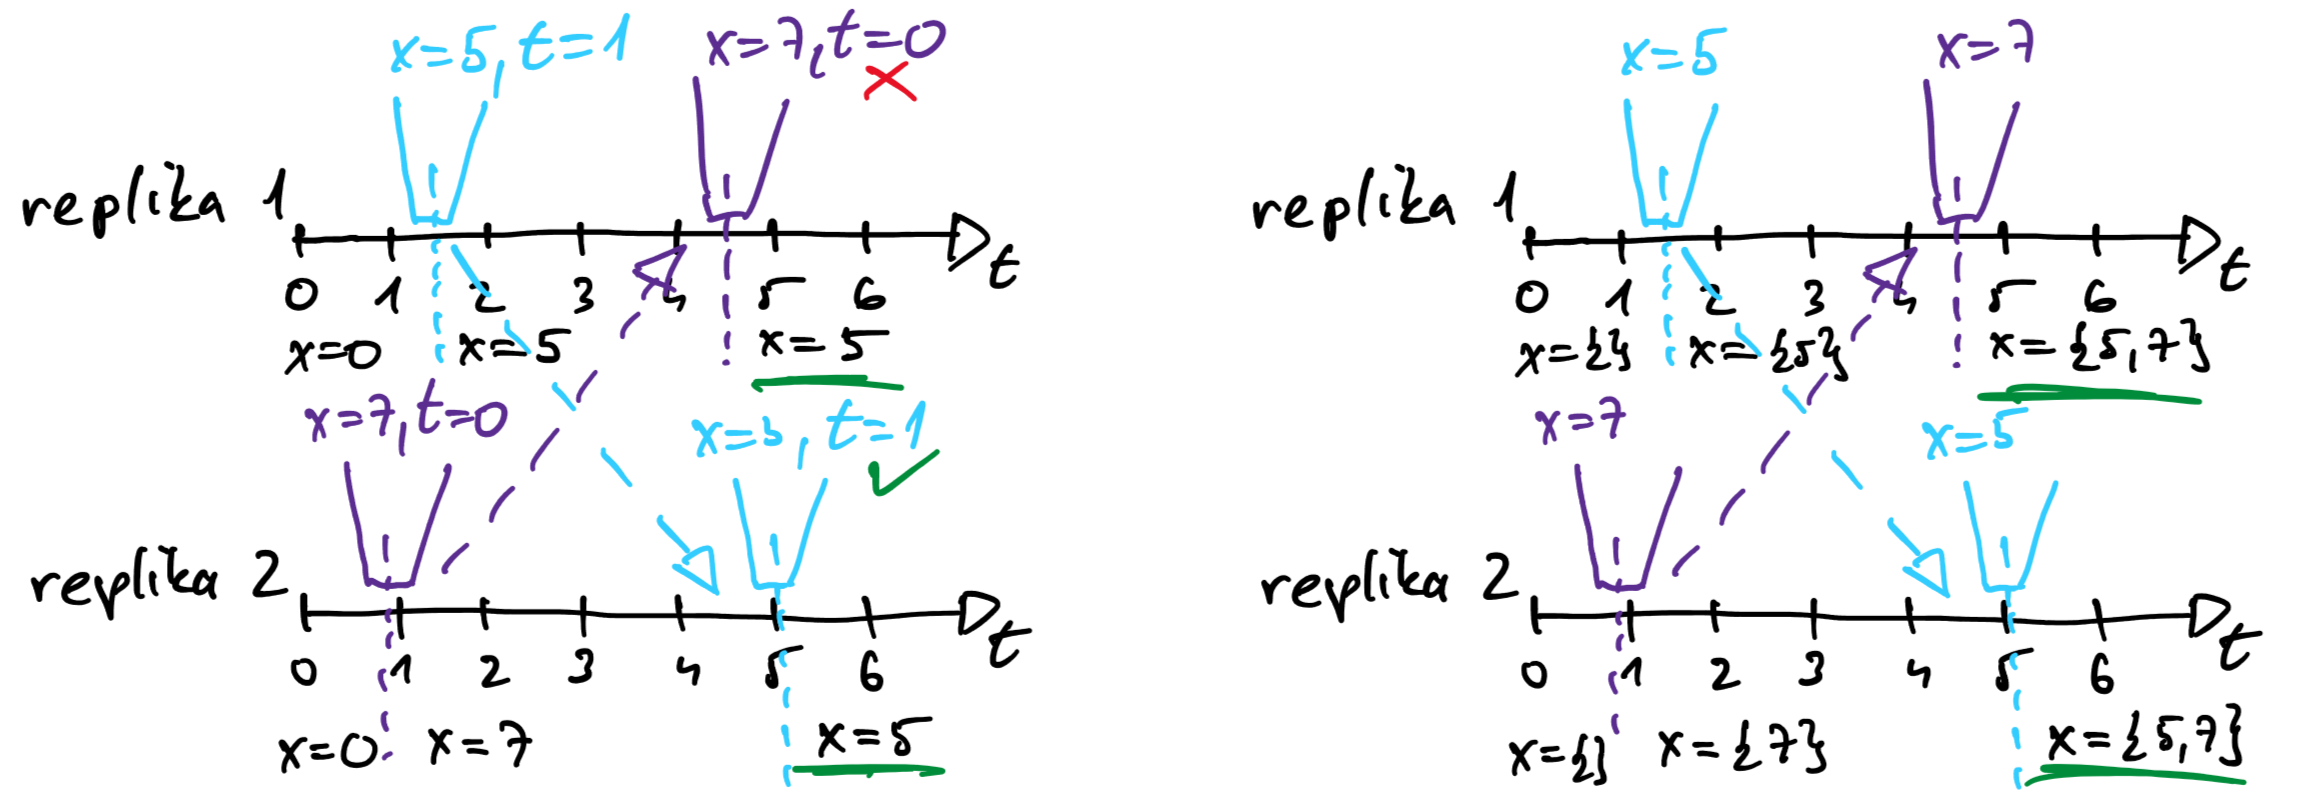 x=5, t=1
x=7, t=0
replika 1
0 1 2 3 4 5 6 t
x=0 x=5 x=5
x=7, t=0
x=5, t=1
replika 2
0 1 2 3 4 5 6 t
x=0 x=7 x=5
x=5
x=7
replika 1
0 1 2 3 4 5 6 t
x={} x={5} x={5,7}
x=7
x=5
replika 2
0 1 2 3 4 5 6 t
x={} x={7} x={5,7}